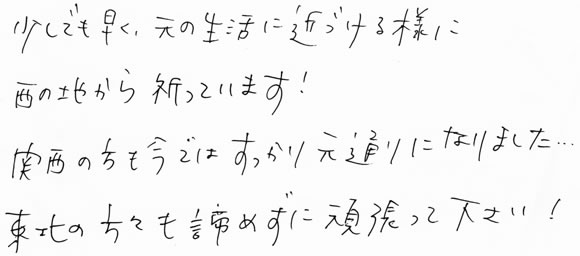 少しでも早く、元の生活に近づける様に
西の地から祈っています!
関西の方も今ではすっかり元通りになりました…
東北の方々も諦めずに頑張って下さい!